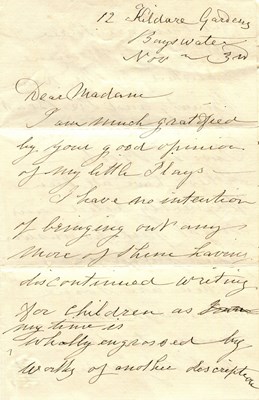 12 Kildare Gardens
Bayswater
Nov 3rd
Dear Madame
I am much gratified
by your good opinion
of my little Plays -
I have no intention
of bringing out any
more of them having
discontinued writing
for children as
my time is
wholly engrossed by
works of another description